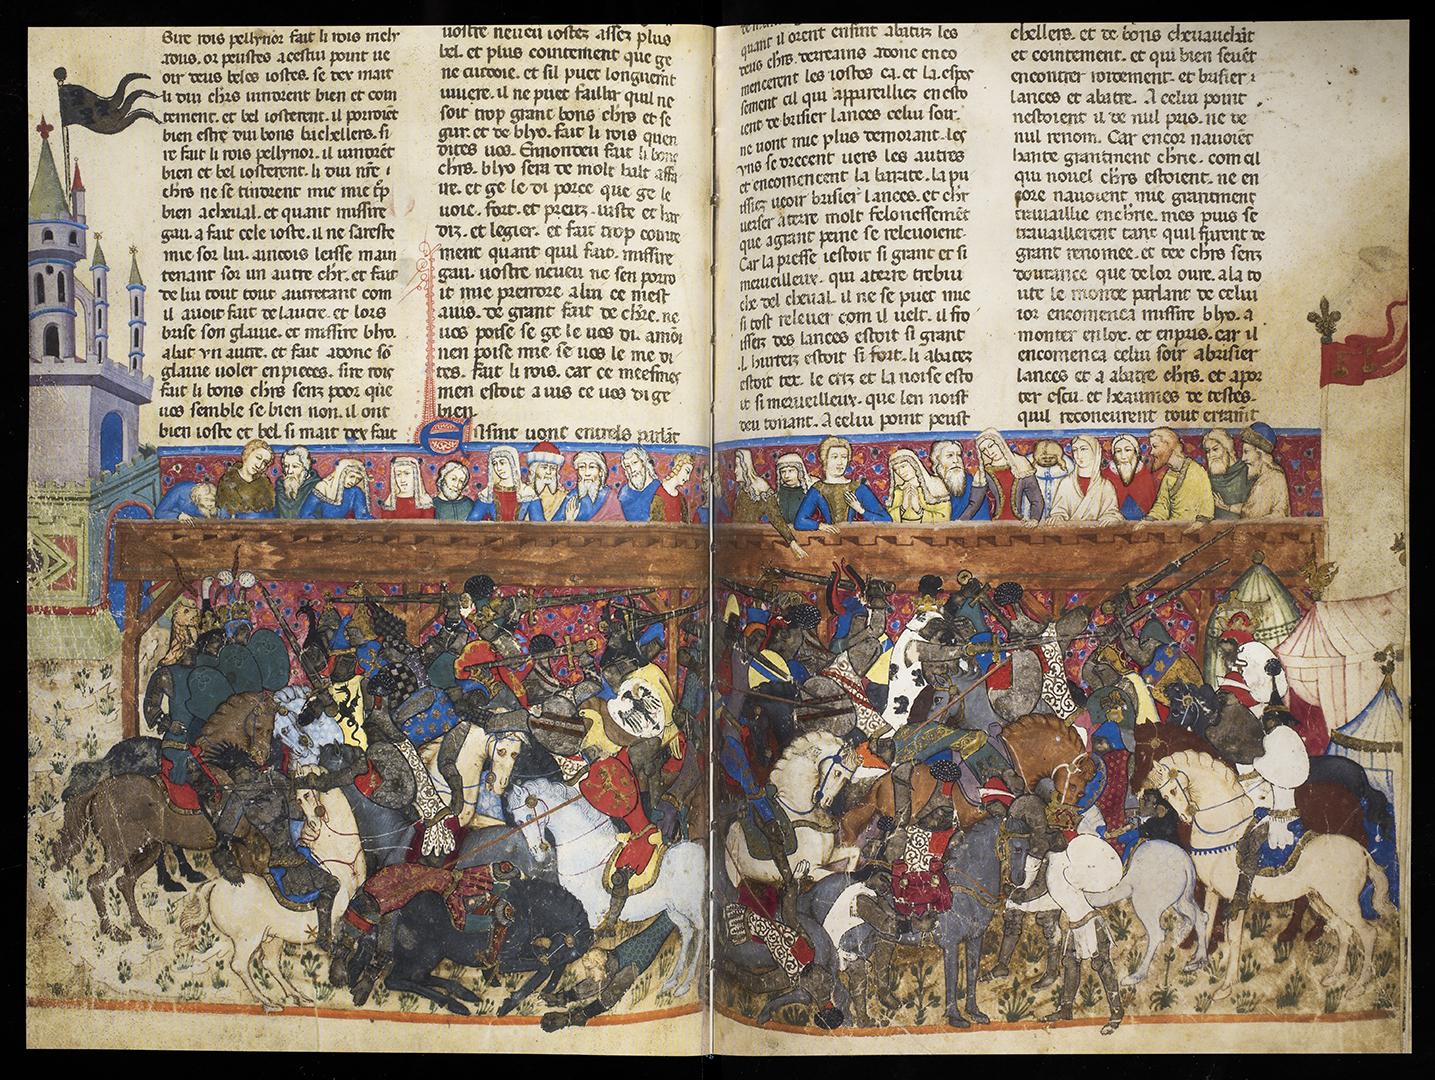 Sire rois pellynor fait li rois meli
adus. or peustes acestui point ue
oir deus beles iostes. se dex mait
li dui chrs uindrent bien et com
tement. et bel iosterent. il pouroiet
bien estre dui bons bachellers. si
re fait li rois pellynor. il uindret
bien et bel iosterent. li dui nre
chrs ne se tindrent mie mie
bien acheual. et quant missire
gau. a fait cele ioste. il ne sareste
mie sor lui. aincois lesse main
tenant sor un autre chr. et fait
de lui tout tout autretant com
il auoit fait de lautre. et lors
brise son glaiue. et missire blyo.
abat vn autre. et fait adonc so
glaiue uoler en pieces. sire rois
fait li bons chrs senz poor que
uos semble se bien non. il ont
bien ioste et bel si mait dex fait
uostre neueu iostez assez plus
bel. et plus cointement que ge
ne cuidoie. et sil puet longuemt
uiuere. il ne puet faillir quil ne
soit trop grant bons chrs et se
gur. et de blyo. fait li rois quen
dites uos. Ennondeu fait li bons
chrs. blyo sera de molt halt affa
ire. et ge le di porce que ge le
uoie. fort. et preuz. uiste et har
diz. et legier. et fait trop cointe
ment quant quil fait. missire
gau. uostre neueu ne sen porro
it mie prendre alui ce mest
auis. de grant fait de chrie. ne
uos poise se ge le uos di. amoi
nen poise mie. se uos le me di
tes. fait li rois. car ce meesmes
men estoit auis ce uos di ge
bien.
Ensint uont entrels parlat
quant il orent ensint abatuz les
deus chrs. derreains adonc enco
mencerent les iostes ca. et la. espes
sement cil qui appareilliez en esto
ient de brisier lances celui soir.
ne uont mie plus demorant. les
vns se drecent uers les autres
et encomencent la barate. la pu
issiez ueoir brisier lances. et chr
uerser aterre molt felonessemet
que agrant peine se releuoient.
Car la presse iestoit si grant et si
merueilleux. qui aterre trebu
che del cheual. il ne se puet mie
si tost releuer com il uelt. il fro
isseiz des lances estoit si grant
.l. hurteiz estoit si fort. li abateiz
estoit tex. le criz et la noise esto
it si merueilleux. que len noist
deu tonant. A celui point peust
chellers. et de bons cheuauchat
et cointement. et qui bien seuet
encontrer fortement. et brisier
lances et abatre. A celui point
nestoient il de nul pris. ne de
nul renom. Car encor nauoiet
hante granment chrie. com cil
qui nouel chrs estoient. ne en
core nauoient mie granment
trauaillie enchrie. mes puis se
trauaillerent tant quil furent de
grant renomee. et tex chrs senz
doutance que delor oure. ala to
ute le monde parlant de celui
ior encomenca missire blyo. a
monter en lox. et enpris. car il
encomenca celui soir abrisier
lances et a abatre chrs. et apor
ter escu. et heaumes de testes.
quil reconeurent tout erramt